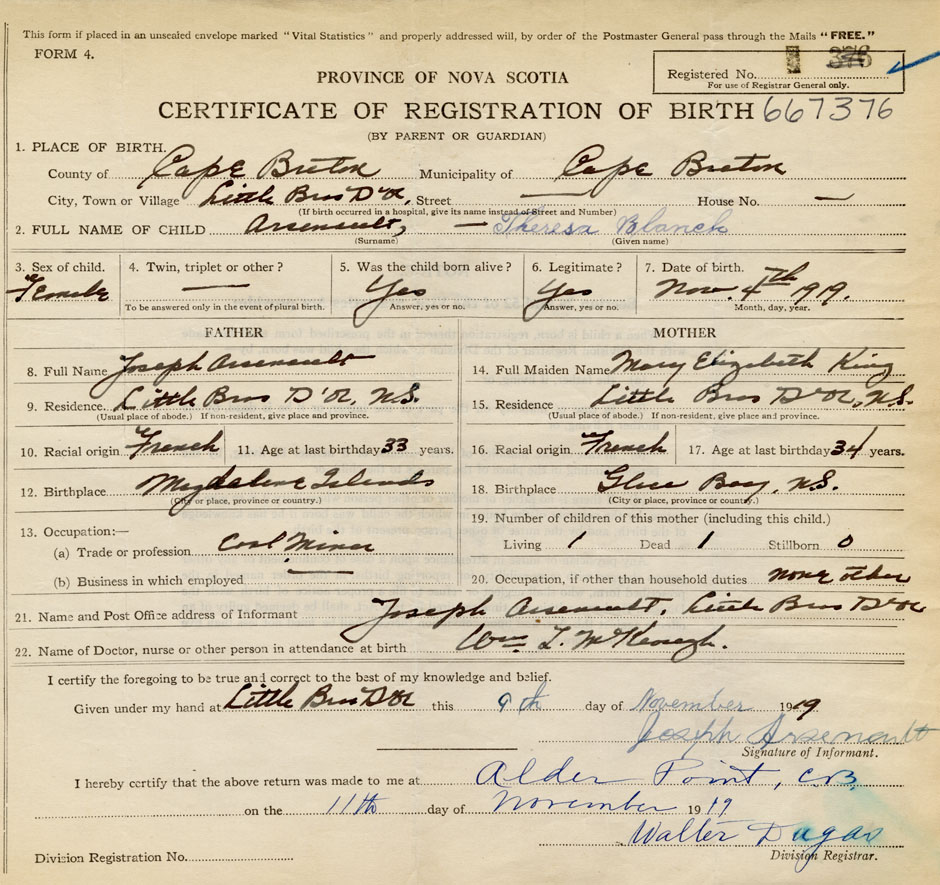 This form if placed in an unsealed envelope marked "Vital Statistics" and properly addressed will, by order of the Postmaster General pass through the Mails "FREE."
FORM 4.
Registered No. 376
For use of Registrar General only.
PROVINCE OF NOVA SCOTIA
CERTIFICATE OF REGISTRATION OF BIRTH 667376
(BY PARENT OR GUARDIAN)
1. PLACE OF BIRTH.
County of Cape Breton Municipality of Cape Breton
City, Town or Village Little Bras D'Or, Street — House No. —
(If birth occurred in a hospital, give its name instead of Street and Number)
2. FULL NAME OF CHILD Arsenault, — Theresa Blanch
(Surname) (Given name)
3. Sex of child. 4. Twin, triplet or other? 5. Was the child born alive? 6. Legitimate? 7. Date of birth.
Female — Yes Yes Nov. 4th 1919.
To be answered only in the event of plural birth. Answer, yes or no. Answer, yes or no. Month, day, year.
FATHER MOTHER
8. Full Name Joseph Arsenault 14. Full Maiden Name Mary Elizabeth King
9. Residence Little Bras D'Or, N.S. 15. Residence Little Bras D'Or, N.S.
(Usual place of abode.) If non-resident, give place and province. (Usual place of abode.) If non-resident, give place and province.
10. Racial origin French 11. Age at last birthday 33 years. 16. Racial origin French 17. Age at last birthday 34 years.
12. Birthplace Magdalene Islands 18. Birthplace Glace Bay, N.S.
(City or place, province or country.) (City or place, province or country.)
13. Occupation:— 19. Number of children of this mother (including this child.)
(a) Trade or profession Coal Miner Living 1 Dead 1 Stillborn 0
(b) Business in which employed — 20. Occupation, if other than household duties none other
21. Name and Post Office address of Informant Joseph Arsenault, Little Bras D'Or
22. Name of Doctor, nurse or other person in attendance at birth Wm L. McKeough.
I certify the foregoing to be true and correct to the best of my knowledge and belief.
Given under my hand at Little Bras D'Or this 9th day of November 1919.
Joseph Arsenault
Signature of Informant.
I hereby certify that the above return was made to me at Alder Point, C.B.
on the 11th day of November 1919
Walter Dugas
Division Registration No. Division Registrar.